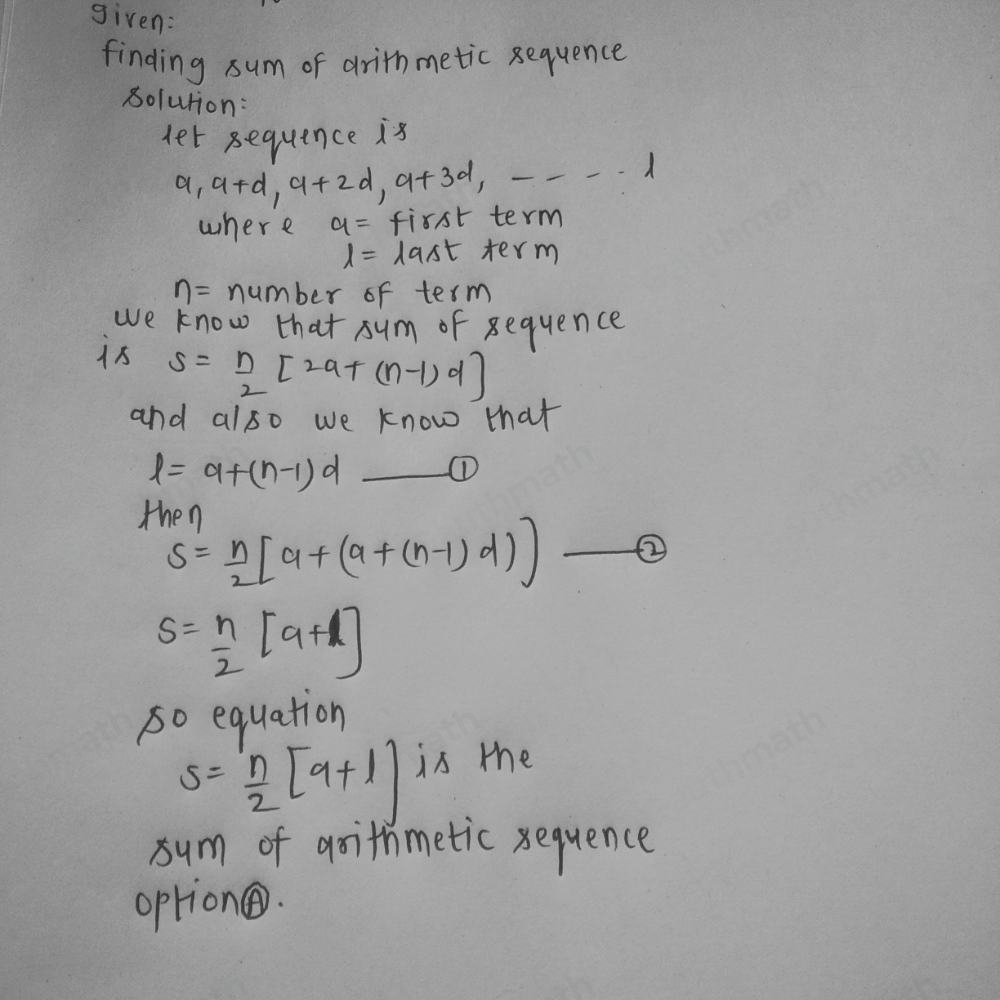 given:
finding sum of arithmetic sequence
solution:
let sequence is
a, a+d, a+2d, a+3d, - - - - . l
where a = first term
l = last term
n = number of term
we know that sum of sequence
is s = n/2 [2a+(n-1)d]
and also we know that
l = a+(n-1)d ——— ①
then
s = n/2 [a+(a+(n-1)d)] ——— ②
s = n/2 [a+l]
so equation
s = n/2 [a+l] is the
sum of arithmetic sequence
option Ⓐ.